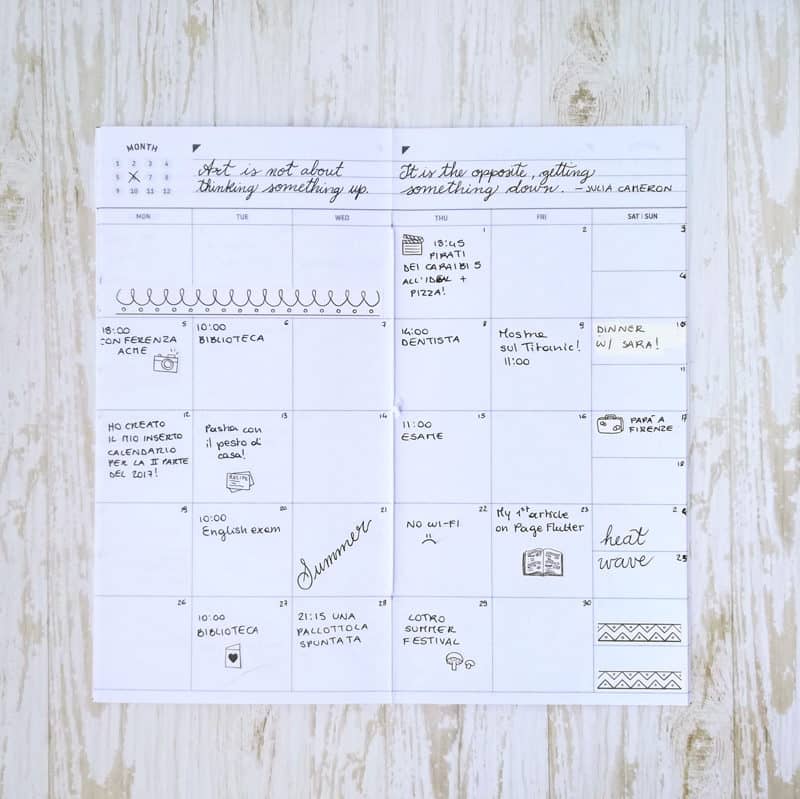 MONTH
1 2 3 4
5 7 8
9 10 11 12
Art is not about
thinking something up.
It is the opposite, getting
something down. - JULIA CAMERON
MON TUE WED THU FRI SAT | SUN
1 2 3
18:45
PIRATI
DEI CARAIBI 5
ALL'IDEAL +
PIZZA!
4
5 6 7 8 9 10
18:00
CONFERENZA
ACME
10:00
BIBLIOTECA
14:00
DENTISTA
Mostra
sul Titanic!
11:00
DINNER
W/ SARA!
11
12 13 14 15 16 17
HO CREATO
IL MIO INSERTO
CALENDARIO
PER LA II PARTE
DEL 2017!
Pasta con
il pesto di
casa!
RECIPE
11:00
ESAME
PAPÀ A
FIRENZE
18
19 20 21 22 23 24
10:00
English exam
Summer
NO WI-FI
My 1st article
on Page Flutter
heat
wave
25
26 27 28 29 30
10:00
BIBLIOTECA
21:15 UNA
PALLOTTOLA
SPUNTATA
LOTRO
SUMMER
FESTIVAL